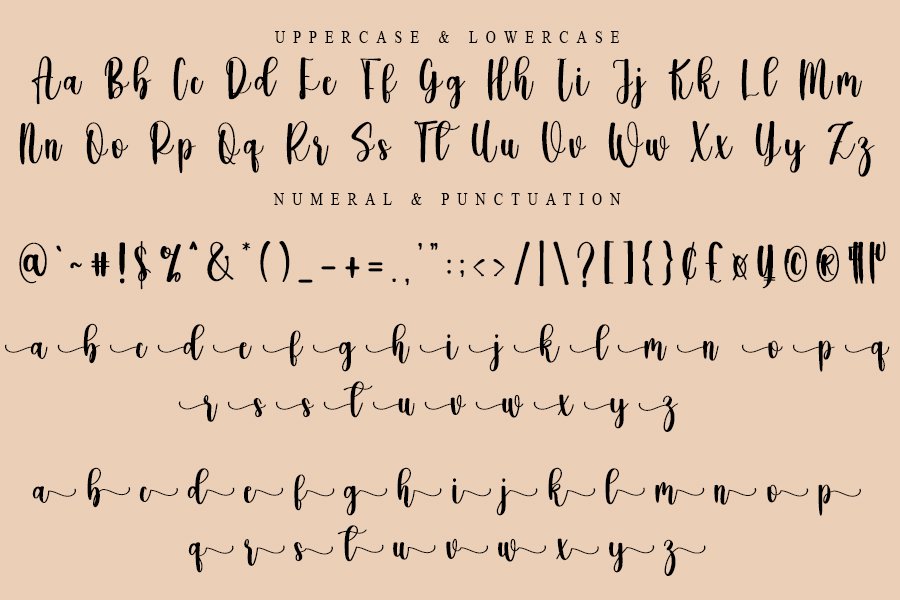 UPPERCASE & LOWERCASE
Aa Bb Cc Dd Ee Ff Gg Hh Ii Jj Kk Ll Mm
Nn Oo Pp Qq Rr Ss Tt Uu Vv Ww Xx Yy Zz
NUMERAL & PUNCTUATION
@ ` ~ # ! $ % ^ & * ( ) _ - + = . , ' " : ; < > / | \ ? [ ] { } ¢ £ ¤ ¥ © ® ¶
a b c d e f g h i j k l m n o p q
r s s t u v w x y z
a b c d e f g h i j k l m n o p
q r s t u v w x y z